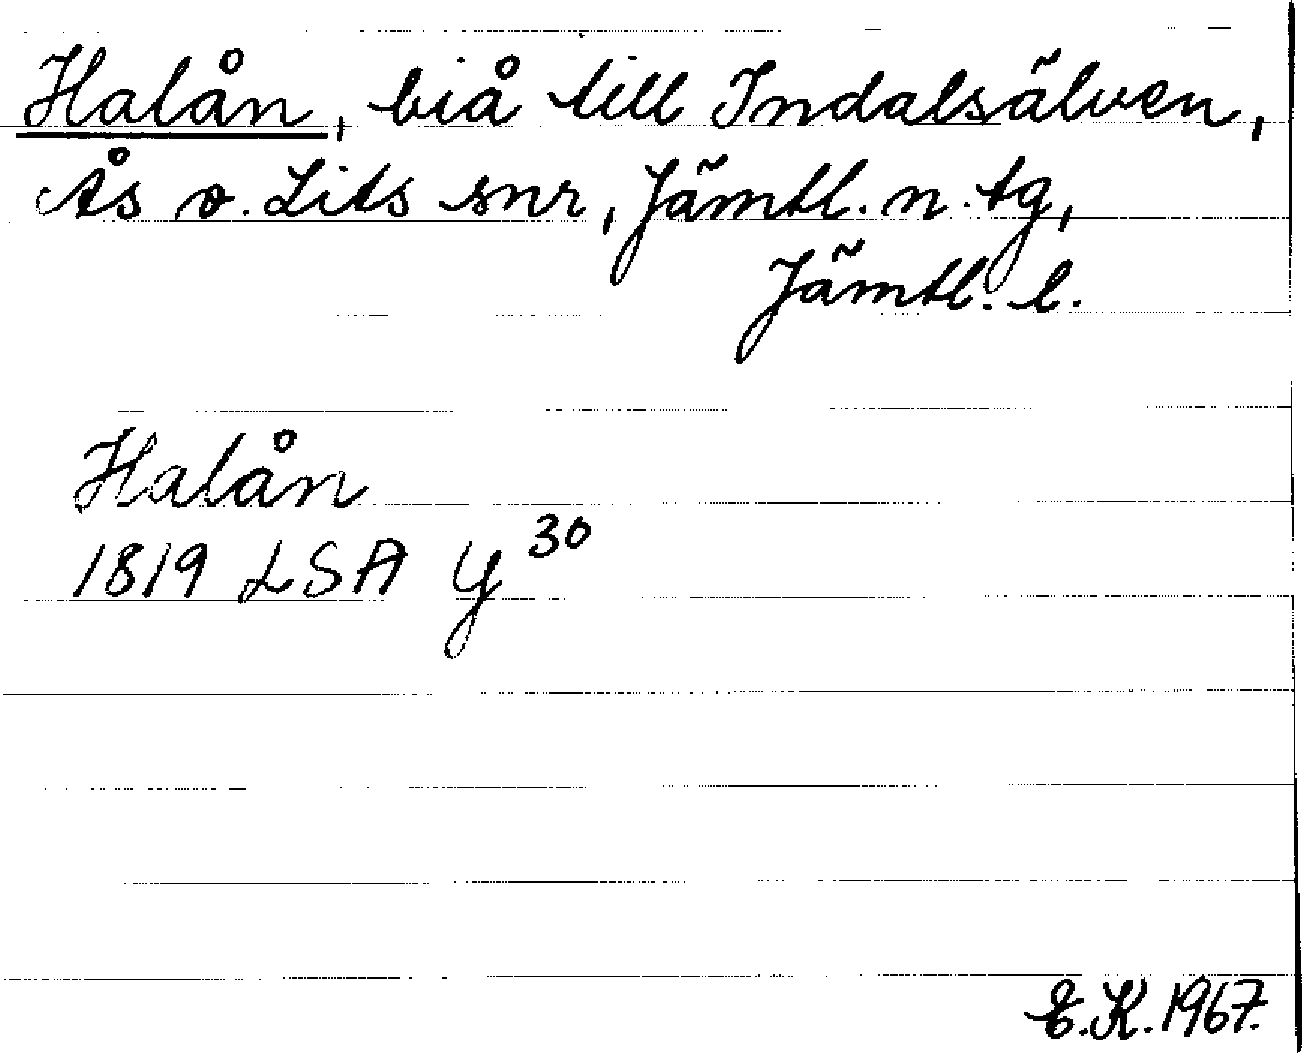 Halån, biå till Indalsälven,
Ås o. Lits snr, Jämtl. n. tg,
Jämtl. l.
Halån
1819 LSA Y 30
E.K. 1967.